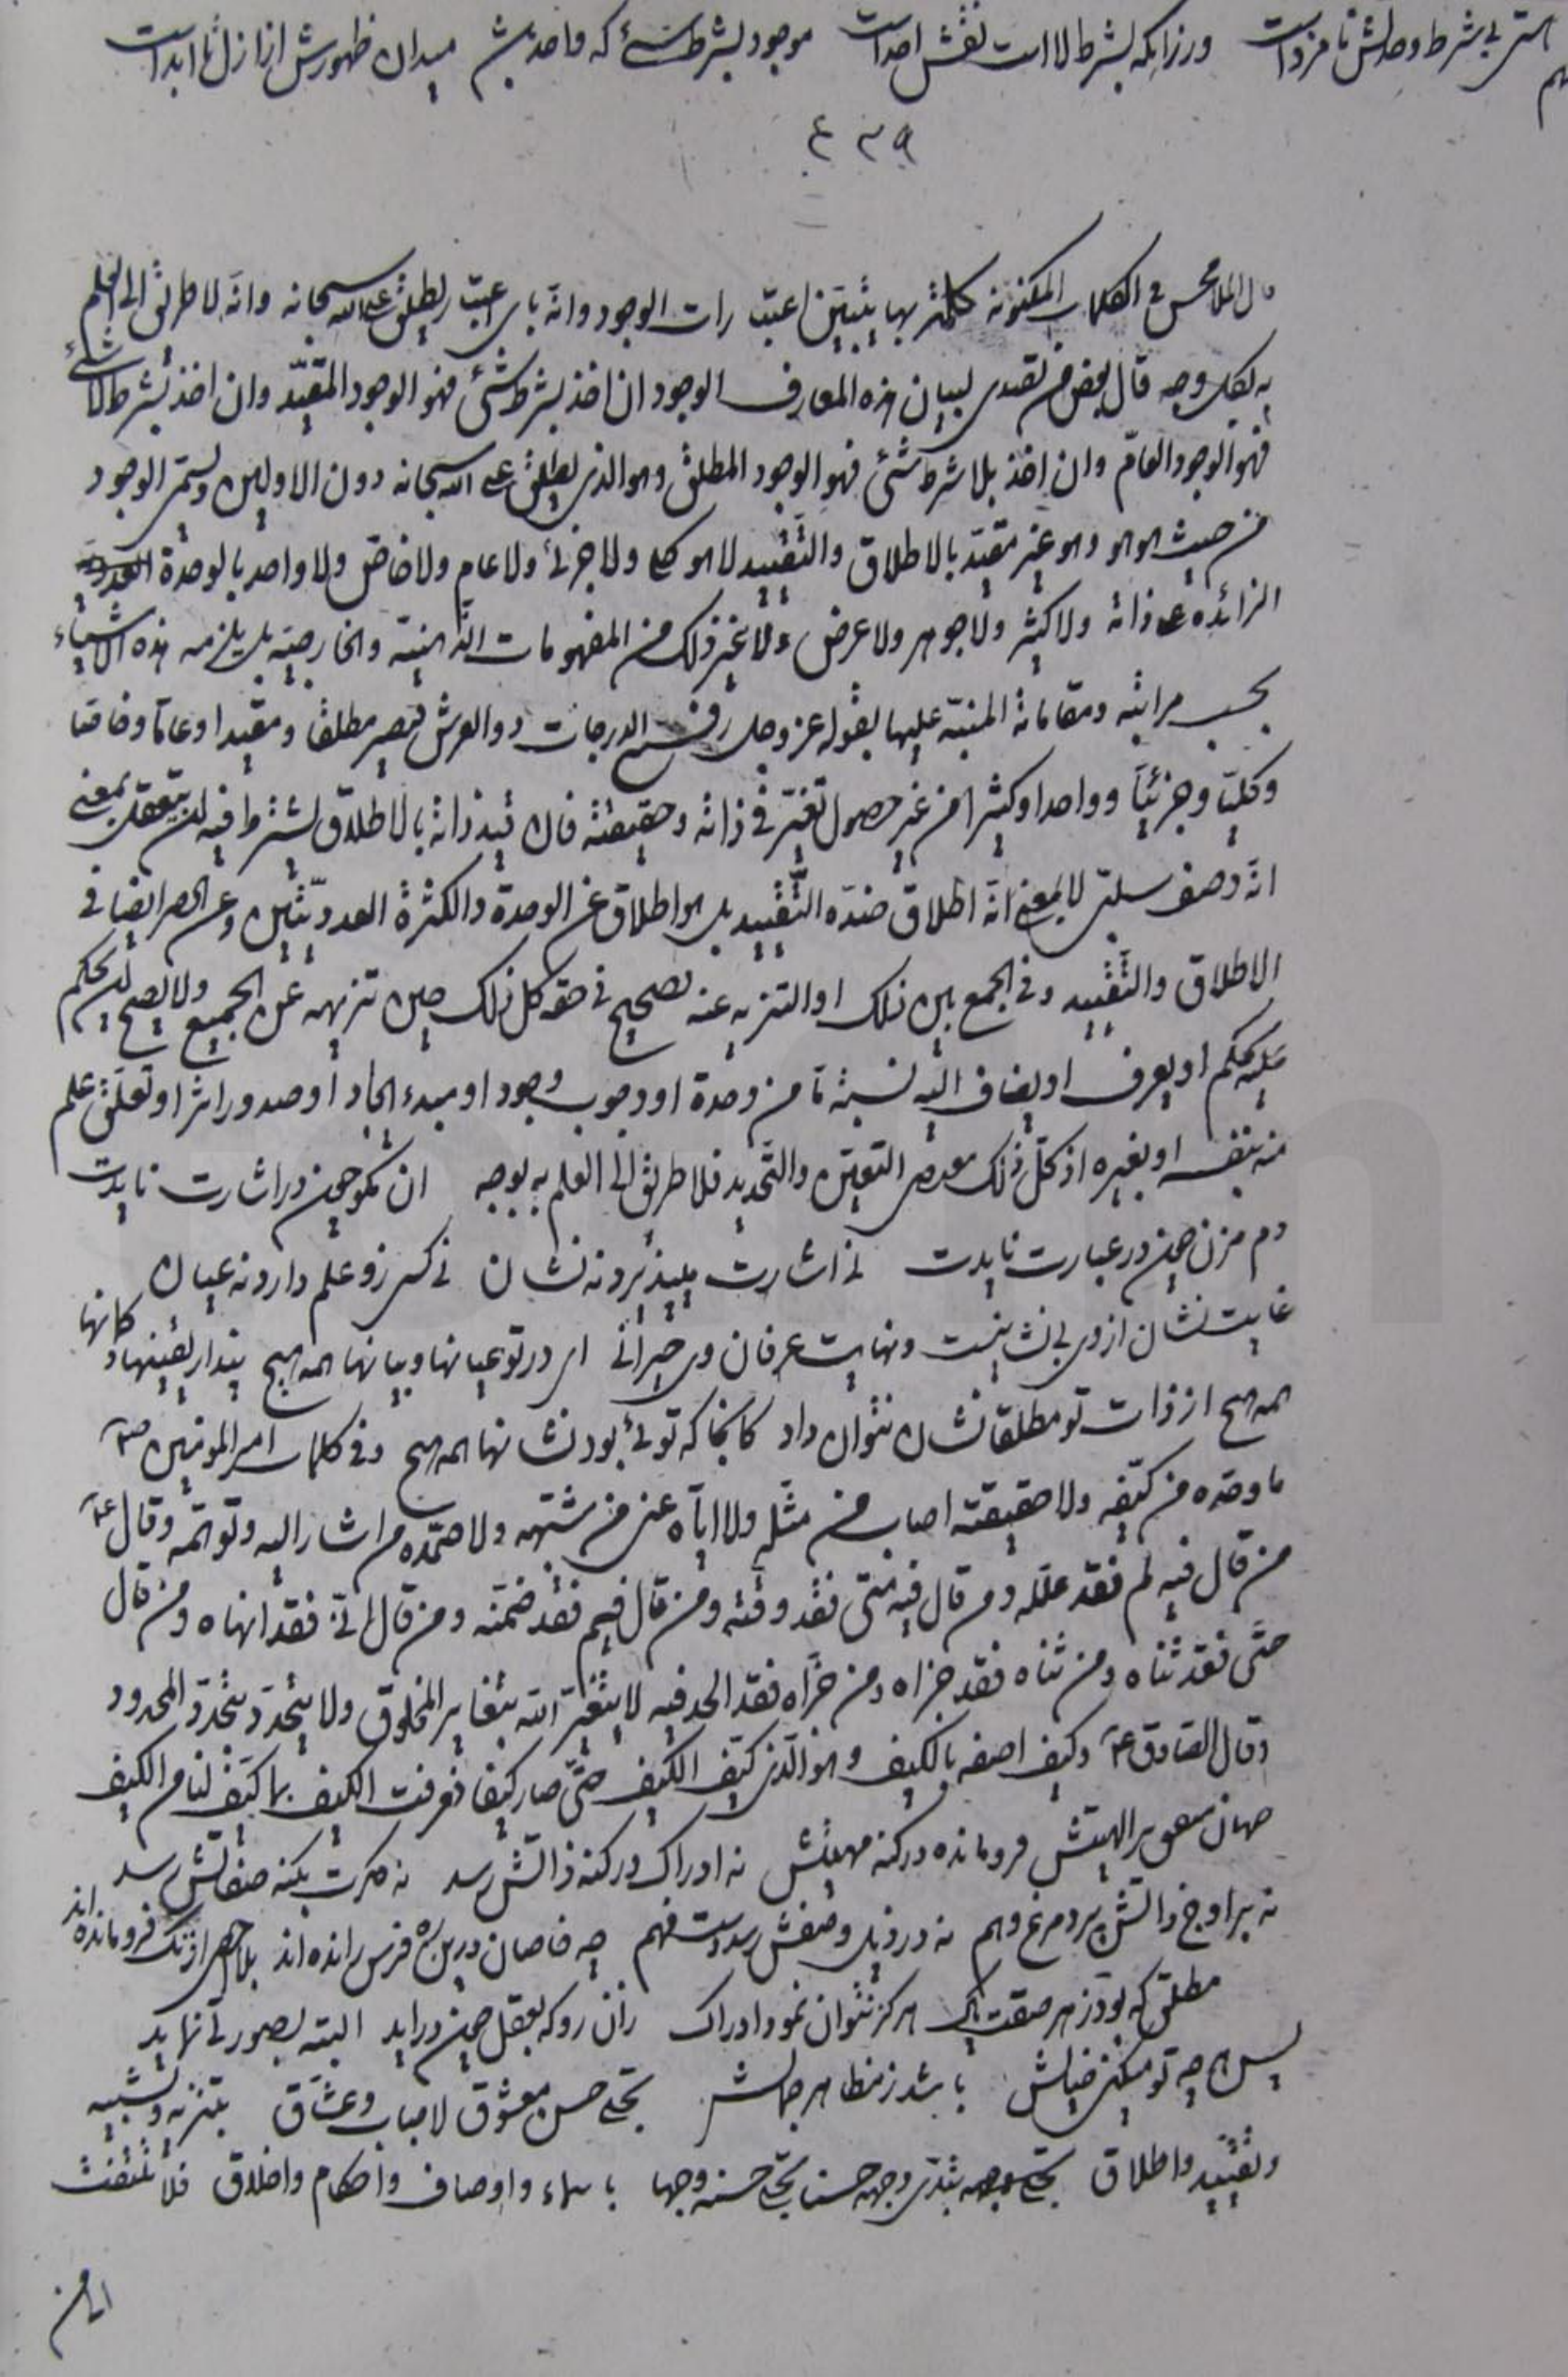 هستی بی شرط وحدتش نامزد است ورزانکه بشرط لا است نقش احد است موجود بشرط شئ که واحد بش میدان ظهورش از ازل تا ابد است
٤٣٩
قال الملا محسن فی الکلمات المکنونة کلمة بها یتبین اعتبارات الوجود وانه بای اعتبار یطلق علی الله سبحانه وانه لا طریق الی العلم
به بکل وجه قال بعض من تصدی لبیان هذه المعارف الوجود ان اخذ بشرط شئ فهو الوجود المقید وان اخذ بشرط لا شئ
فهو الوجود العام وان اخذ بلا شرط شئ فهو الوجود المطلق وهو الذی یطلق علی الله سبحانه دون الاولین ویسمی الوجود
من حیث هو هو وهو غیر مقید بالاطلاق والتقیید لا هو کلی ولا جزئی ولا عام ولا خاص ولا واحد بالوحدة العددیة
الزائده علی ذاته ولا کثیر ولا جوهر ولا عرض ولا غیر ذلک من المفهومات الذهنیة والخارجیة بل یلزمه هذه الاشیاء
بحسب مراتبه ومقاماته المنبه علیها بقوله عز وجل رفیع الدرجات ذو العرش فیصیر مطلقا ومقیدا وعاما وخاصا
وکلیا وجزئیا وواحدا وکثیرا من غیر حصول تغیر فی ذاته وحقیقته فان قید ذاته بالاطلاق یشترط فیه ان یتعقل بمعنی
انه وصف سلبی لا بمعنی انه اطلاق ضده التقیید بل هو اطلاق عن الوحدة والکثرة العددیتین وعن الحصر ایضا فی
الاطلاق والتقیید وفی الجمع بین ذلک او التنزیه عنه فصحیح فی حقه کل ذلک حین تنزیهه عن الجمیع ولا یصح ان یحکم
علیه بحکم او یعرف او یضاف الیه نسبة ما من وحدة او وجوب وجود او مبدء ایجاد او صدور اثر او تعلق علم
منه بنفسه او بغیره اذ کل ذلک یقتضی التعین والتحدید فلا طریق الی العلم به بوجه ان مگو چون در اشارت نایدت
دم مزن چون در عبارت نایدت نی اشارت میپذیرد نه نشان نی کسی زو علم دارد نه عیان
غایت نشان از وی بی نشانیست ونهایت عرفان وی حیرانی ای در تو عیانها وبیانها همه هیچ پندار یقینها وگمانها
همه هیچ از ذات تو مطلقا نشان نتوان داد کانجا که توئی بود نشانها همه هیچ وفی کلمات امیر المؤمنین ع
ما وحده من کیفه ولا حقیقته اصاب من مثله ولا ایاه عنی من شبهه ولا صمده من اشار الیه وتوهمه وقال ع
من قال فیه لم فقد علله ومن قال فیه متی فقد وقته ومن قال فیم فقد ضمنه ومن قال الی فقد انهاه ومن قال
حتی فقد ثناه ومن ثناه فقد جزاه ومن جزاه فقد الحد فیه لا یتغیر الله بتغایر المخلوق ولا یتحدد بتحدد المحدود
وقال الصادق ع وکیف اصفه بالکیف وهو الذی کیف الکیف حتی صار کیفا فعرفت الکیف بما کیف لنا من الکیف
جهان متفق بر الهیتش فرومانده در کنه مهیتش نه ادراک در کنه ذاتش رسد نه فکرت بکنه صفاتش رسد
نه بر اوج ذاتش پرد مرغ وهم نه در ذیل وصفش رسد دست فهم چه خاصان درین ره فرس رانده اند بلا احصی از تک فرومانده اند
مطلق که بود ز هر صفت پاک هرگز نتوان نمود ادراک زان رو که بعقل چون دراید البته بصورتی نماید
پس هر چه تو میکنی خیالش باشد ز مظاهر جمالش تجلی حسن معشوق لاحباب وعشاق بتنزیه وتشبیه
وتقیید واطلاق تجلی وجهه بتدی وجهه حسنا تجلی حسنه وجها باسماء واوصاف واحکام واخلاق فلا تلتفت